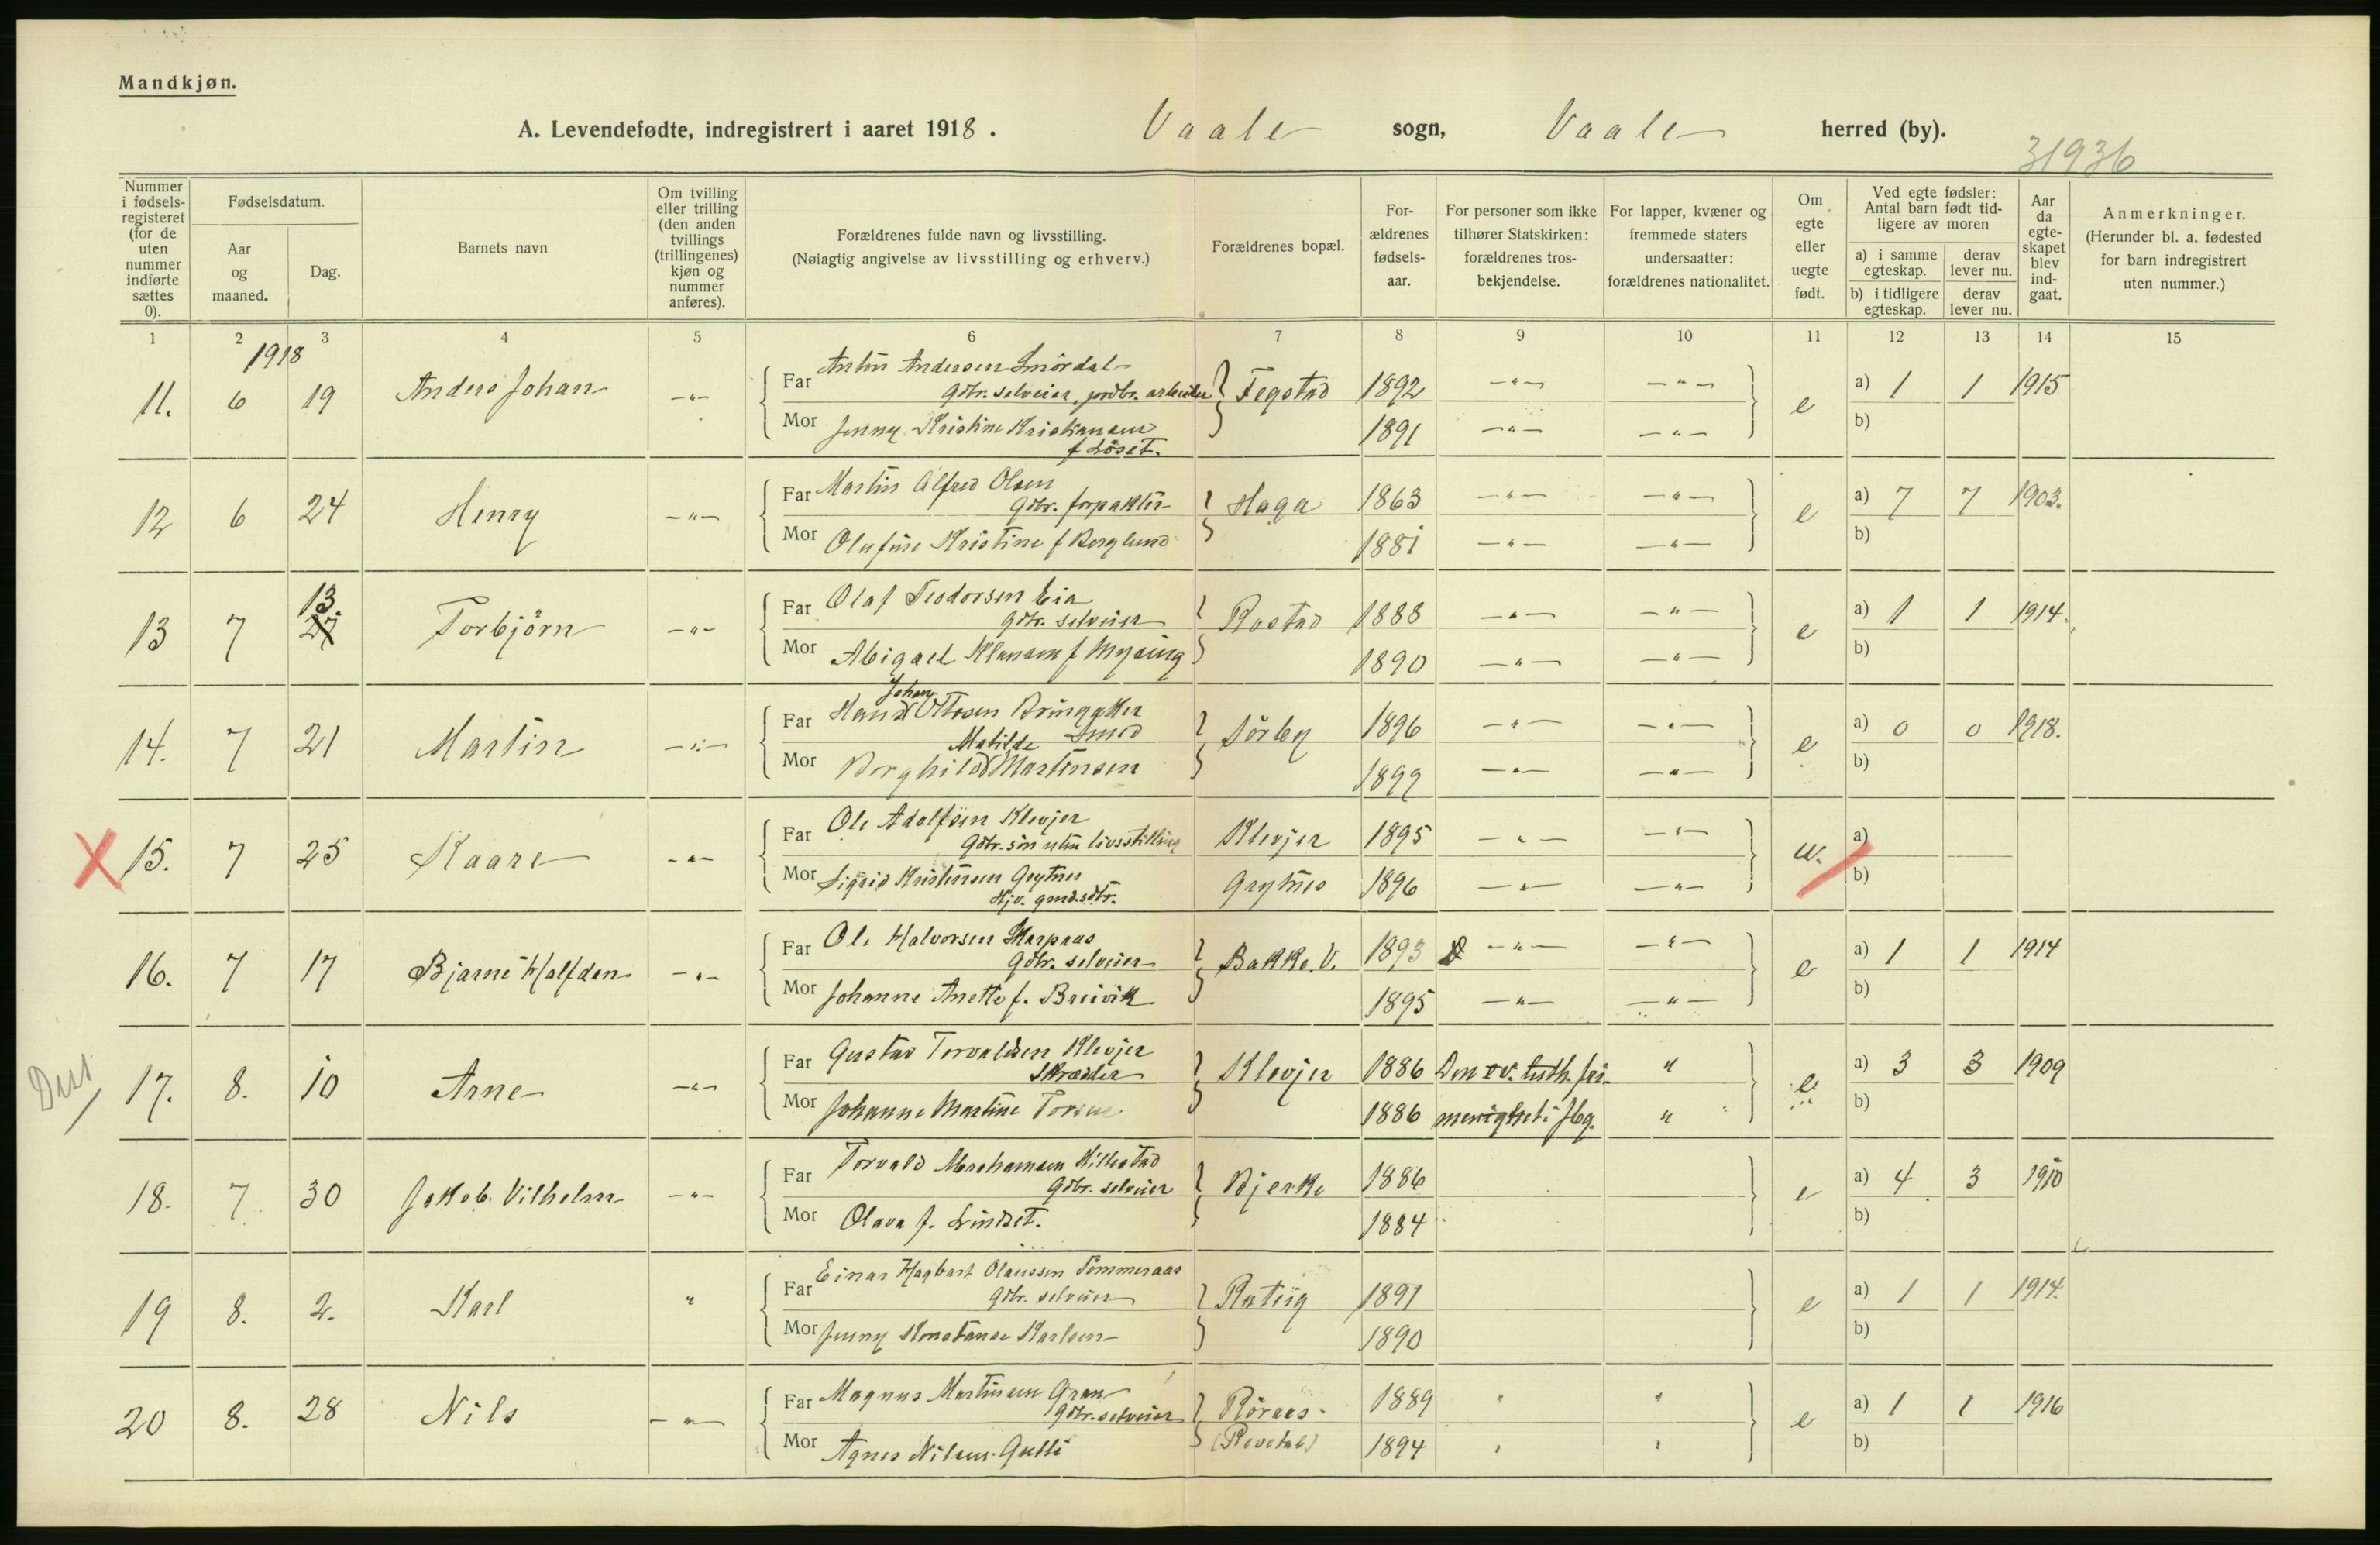 Mandkjøn.
A. Levendefødte, indregistrert i aaret 1918. Vaale sogn, Vaale herred (by).
31936
Nummer i fødsels-registeret (for de uten nummer indførte sættes 0).
Fødselsdatum.
Aar og maaned.
Dag.
Barnets navn
Om tvilling eller trilling (den anden tvillings (trillingenes) kjøn og nummer anføres).
Forældrenes fulde navn og livsstilling.
(Nøiagtig angivelse av livsstilling og erhverv.)
Forældrenes bopæl.
For-ældrenes fødsels-aar.
For personer som ikke tilhører Statskirken: forældrenes tros-bekjendelse.
For lapper, kvæner og fremmede staters undersaatter: forældrenes nationalitet.
Om egte eller uegte født.
Ved egte fødsler: Antal barn født tid-ligere av moren
a) i samme egteskap.
derav lever nu.
b) i tidligere egteskap.
derav lever nu.
Aar da egte-skapet blev ind-gaat.
Anmerkninger.
(Herunder bl. a. fødested for barn indregistrert uten nummer.)
1 2 3 4 5 6 7 8 9 10 11 12 13 14 15
1918
11. 6 19 Anders Johan -"- Far Anton Andersen Smördal Fegstad 1892 -"- -"- e a) 1 1 1915
Gdbr. selveier, jordbr. arbeider
Mor Jenny Kristine Kristiansen 1891 -"- -"- b)
f Löset.
12 6 24 Henry -"- Far Martin Alfred Olsen Haga 1863 -"- -"- e a) 7 7 1903.
Gdbr. forpakter
Mor Olufine Kristine f Berglund 1881 -"- -"- b)
13 7 13 27 Torbjörn -"- Far Olaf Teodorsen Eia Rostad 1888 -"- -"- e a) 1 1 1914.
Gdbr. selveier
Mor Abigael Klausen f Nysing 1890 -"- -"- b)
14. 7 21 Martin -"- Far Hans Johan Ottosen Bringaker Sörby 1896 -"- -"- e a) 0 0 1918.
Smed
Mor Borghild Matilde Martinsen 1899 -"- -"- b)
X 15. 7 25 Kaare -"- Far Ole Adolfsen Klevjer Klevjer 1895 -"- -"- u. a)
Gdbr. sön uten livsstilling
Mor Sigrid Kristensen Grytnes Grytnes 1896 -"- -"- b)
Hjv. gmd.sdtr.
16. 7 17 Bjarne Halfdan -"- Far Ole Halvorsen Skarpaas Bakke. V. 1893 -"- -"- e a) 1 1 1914
Gdbr. selveier
Mor Johanne Anette f. Breivik 1895 -"- -"- b)
Diss
17. 8. 10 Arne -"- Far Gustav Torvaldsen Klevjer Klevjer 1886 Den ev. luth. fri- " e a) 3 3 1909
Skrædder
Mor Johanne Martine 1886 menighet i Tbg. " b)
18. 7 30 Jakob. Vilhelm -"- Far Torvald Abrahamsen Hillestad Bjerke 1886 e a) 4 3 1910
Gdbr. selveier
Mor Olava f. Lindset. 1884 b)
19 8. 2. Karl " Far Einar Hagbart Olaussen Tömmeraas 1891 e a) 1 1 1914.
Gdbr. selveier
Mor Jenny Konstanse Karlsen 1890 b)
20 8. 28 Nils -"- Far Magnus Martinsen Gran Röraas 1889 " " e a) 1 1 1916
Gdbr. selveier
Mor Agnes Nilsen Gulli (Revetal) 1894 " " b)